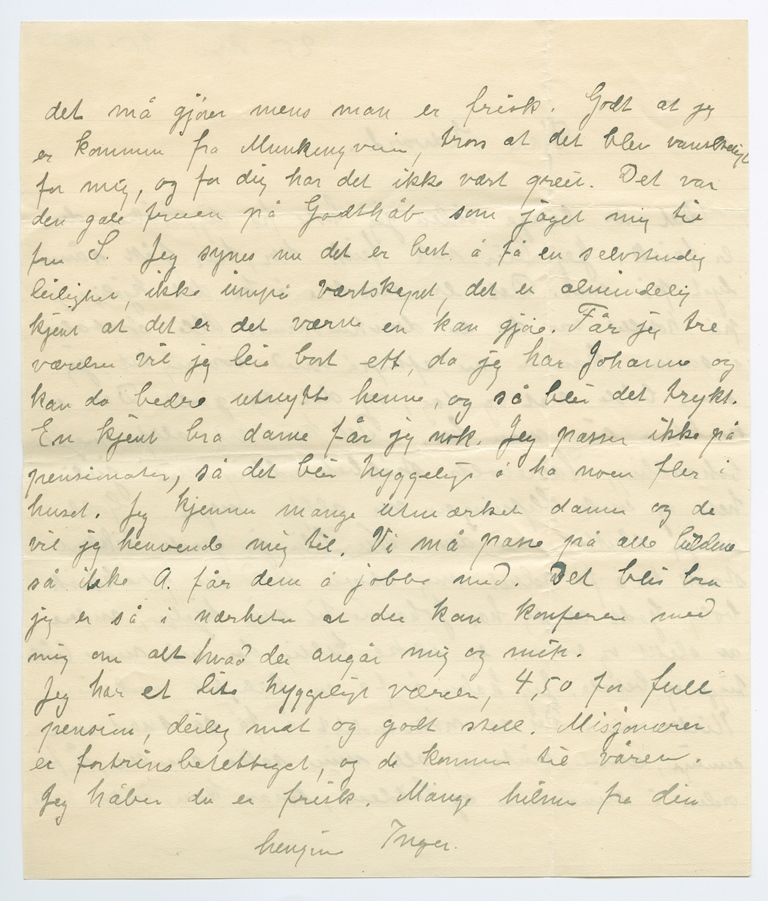 det må gjøres mens man er frisk. Godt at jeg
er kommen fra Munkengveien, tross at det blev vanskelig
for mig, og for dig har det ikke vært greit. Det var
den gale fruen på Godthåb som jaget mig til
fru S. Jeg synes nu det er best å få en selvstendig
leilighet, ikke innpå vertskapet, det er almindelig
kjent at det er det værste en kan gjøre. Får jeg tre
værelser vil jeg leie bort ett, da jeg har Johanne og
kan da bedre utnytte henne, og så blir det trykt.
En kjent bra dame får jeg nok. Jeg passer ikke på
pensionater, så det blir hyggeligt å ha noen fler i
huset. Jeg kjenner mange utmærket damer og de
vil jeg henvende mig til. Vi må passe på alle
så ikke A. får dem å jobbe med. Det blir bra
jeg er så i nærheten at du kan konferere med
mig om alt hvad der angår mig og mitt.
Jeg har et lite hyggeligt værelse, 4,50 for full
pension, deilig mat og godt stell. Misjonærer
er fortrinsberettiget, og de kommer til våren.
Jeg håber du er frisk. Mange hilsner fra din
hengivne Inger.